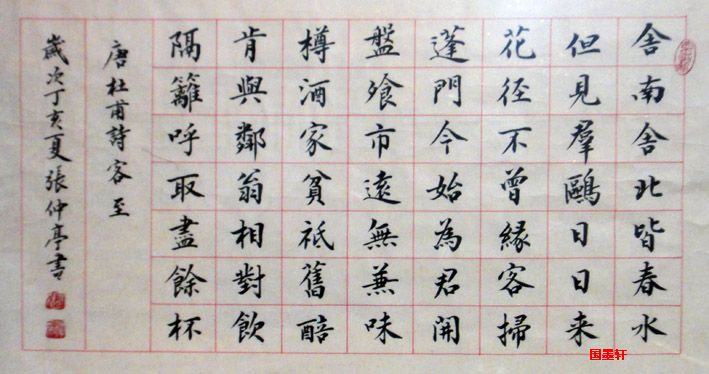 舎南舎北皆春水
但見羣鷗日日来
花徑不曾緣客掃
蓬門今始為君開
盤飱市遠無兼味
樽酒家貧祇舊醅
肯與鄰翁相對飲
隔籬呼取盡餘杯
唐杜甫詩客至
歲次丁亥夏張仲亭書
国墨轩